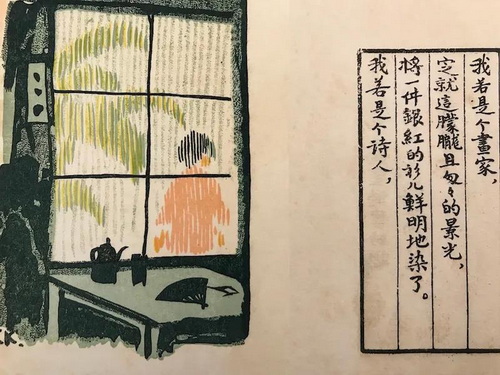 我若是个畫家，
定就這朦朧且匆々的景光，
將一件銀紅的衫儿鮮明地染了。
我若是个詩人，